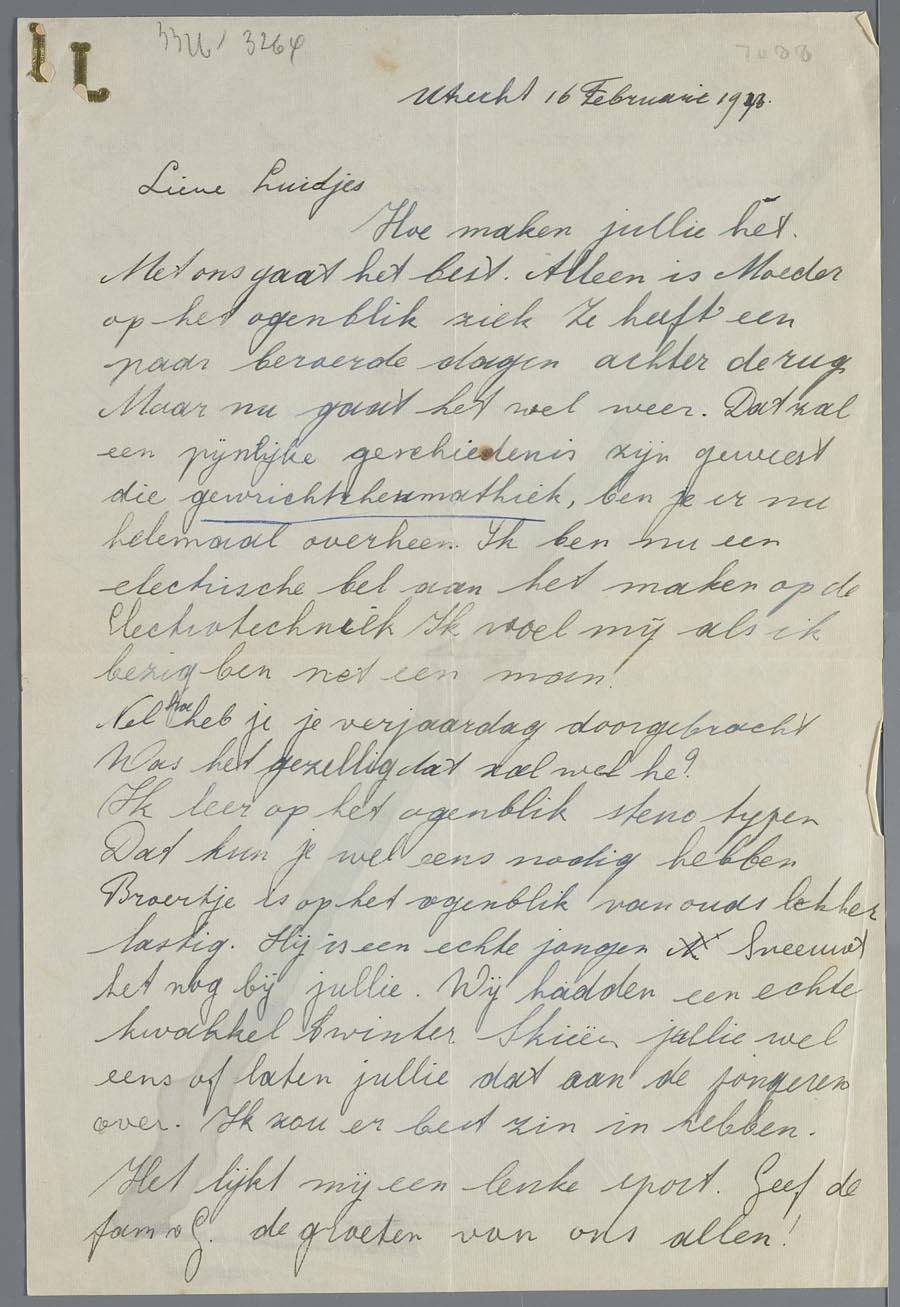 3326 / 3264
Utrecht 16 Februarie 19
Lieve Luidjes
Hoe maken jullie het.
Met ons gaat het best. Alleen is Moeder
op het ogenblik ziek Ze heeft een
paar beroerde dagen achter de rug
Maar nu gaat het wel weer. Dat zal
een pijnlijke geschiedenis zijn geweest
die gewrichtsrheumathiek, ben je er nu
helemaal overheen. Ik ben nu een
electrische bel aan het maken op de
Electrotechniek Ik voel mij als ik
bezig ben net een man!
Nel hoe heb je je verjaardag doorgebracht
Was het gezellig dat zal wel he?
Ik leer op het ogenblik steno typen
Dat kun je wel eens nodig hebben
Broertje is op het ogenblik van ouds lekker
lastig. Hij is een echte jongen Sneeuwt
het nog bij jullie. Wij hadden een echte
kwakkel winter Skiën jullie wel
eens of laten jullie dat aan de jongeren
over. Ik zou er best zin in hebben.
Het lijkt mij een leuke sport. Geef de
fam v G. de groeten van ons allen!